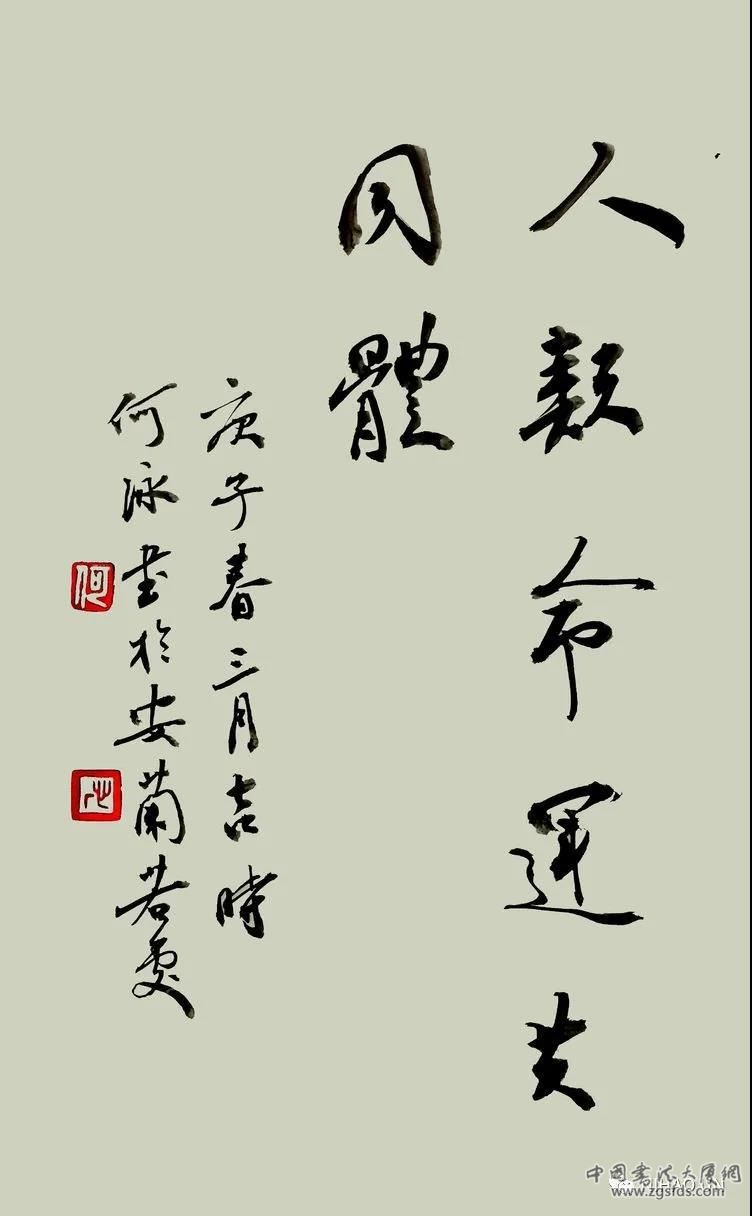 人類命運共
同體
庚子春三月吉時
何泳書於安蘭若處
何
中國書法大厦網
www.zgsfds.com